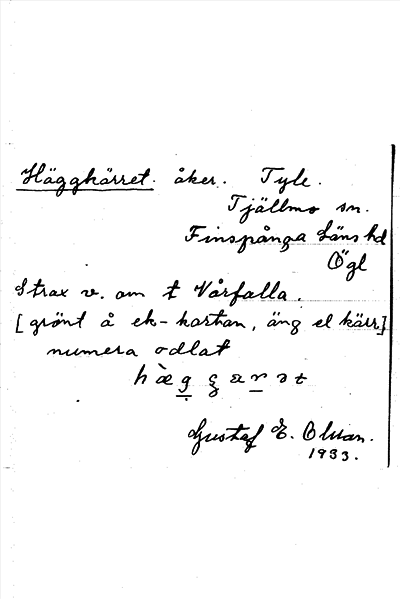 Häggkärret. åker. Tyle.
Tjällmo sn.
Finspånga Läns hd
Ögl
Strax v. om t Vårfalla.
[grönt å ek-kartan, äng el kärr]
numera odlat
Gustaf E. Olsson.
1933.